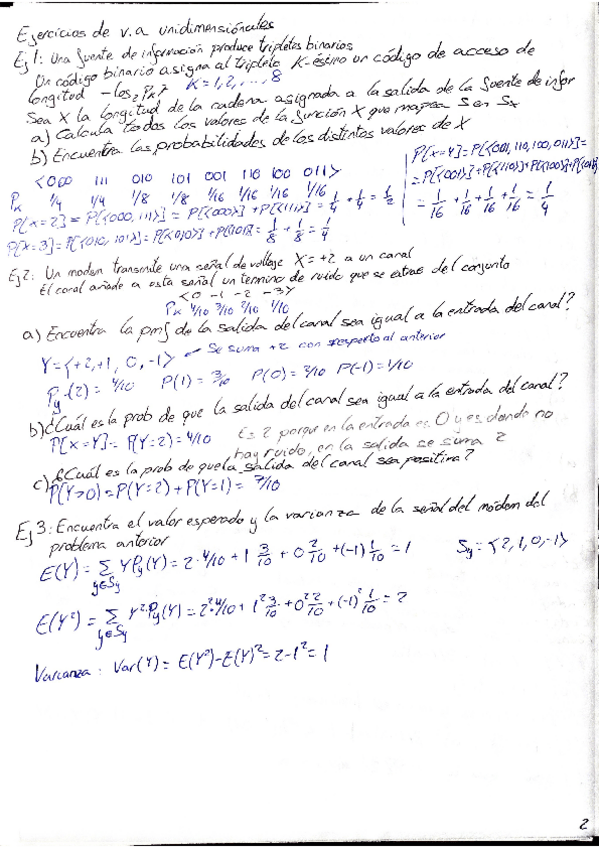 Ejercicios de v.a unidimensionales
Ej 1: Una fuente de información produce tripletes binarios
Un código binario asigna al triplete K-ésimo un código de acceso de
longitud -log₂ Pₖ, K=1,2,...,8
Sea X la longitud de la cadena asignada a la salida de la fuente de infor
a) Calcula todos los valores de la función X que mapea S en Sx
b) Encuentra las probabilidades de los distintos valores de X
{000 111 010 101 001 110 100 011}
Pₖ 1/4 1/4 1/8 1/8 1/16 1/16 1/16 1/16
P[X=2] = P[{000, 111}] = P[{000}] + P[{111}] = 1/4 + 1/4 = 1/2
P[X=3] = P[{010, 101}] = P[{010}] + P[{101}] = 1/8 + 1/8 = 1/4
P[X=4] = P[{001, 110, 100, 011}] =
= P[{001}] + P[{110}] + P[{100}] + P[{011}]
= 1/16 + 1/16 + 1/16 + 1/16 = 1/4
Ej 2: Un modem transmite una señal de voltaje X=+2 a un canal
El canal añade a esta señal un termino de ruido que se extrae del conjunto
{0 -1 -2 -3}
Pₖ 4/10 3/10 2/10 1/10
a) Encuentra la pmf de la salida del canal sea igual a la entrada del canal?
Y = {+2, +1, 0, -1} Se suma +2 con respecto al anterior
Py(2) = 4/10 P(1) = 3/10 P(0) = 2/10 P(-1) = 1/10
b) ¿Cuál es la prob de que la salida del canal sea igual a la entrada del canal?
P[X=Y] = P(Y=2) = 4/10 Es 2 porque en la entrada es 0 y es donde no
hay ruido, en la salida se suma 2
c) ¿Cuál es la prob de que la salida del canal sea positiva?
P(Y>0) = P(Y=2) + P(Y=1) = 7/10
Ej 3: Encuentra el valor esperado y la varianza de la señal del módem del
problema anterior
E(Y) = Σ y∈Sy Y Py(Y) = 2·4/10 + 1 3/10 + 0 2/10 + (-1) 1/10 = 1 Sy = {2, 1, 0, -1}
E(Y²) = Σ y∈Sy Y²·Py(Y) = 2²·4/10 + 1² 3/10 + 0² 2/10 + (-1)² 1/10 = 2
Varianza: Var(Y) = E(Y²) - E(Y)² = 2 - 1² = 1
2